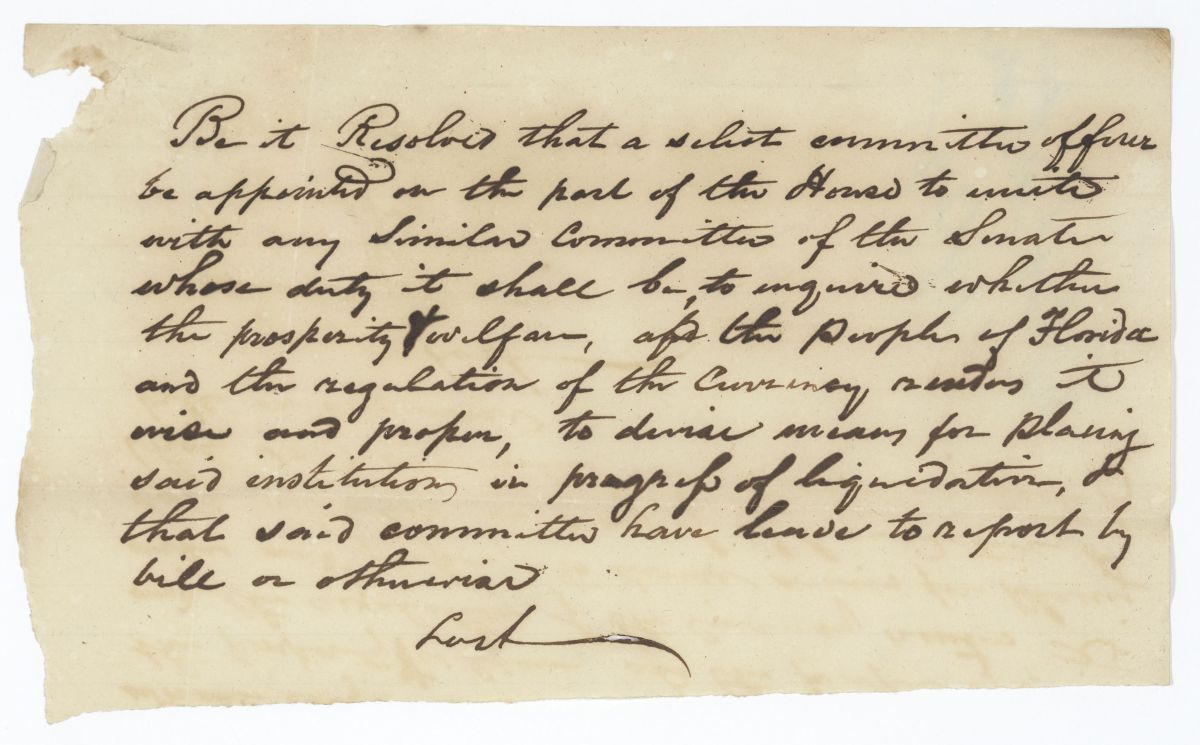 Be it Resolved that a select committee of four
be appointed on the part of the House to unite
with any Similar Committee of the Senate
whose duty it shall be, to enquire whether
the prosperity & welfare, of the People of Florida
and the regulation of the Currency, renders it
wise and proper, to devise means for placing
said institutions in progress of liquidation, &
that said committee have leave to report by
bill or otherwise
Lost